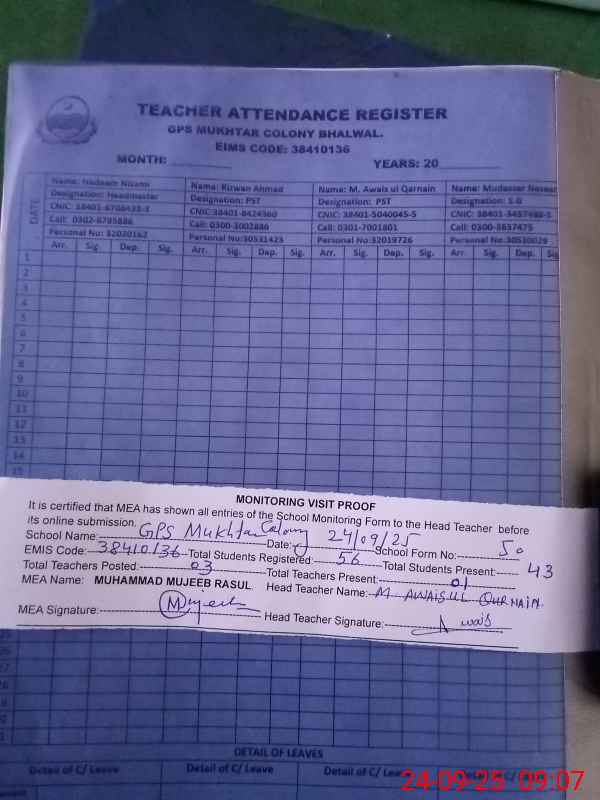 TEACHER ATTENDANCE REGISTER
GPS MUKHTAR COLONY BHALWAL.
EIMS CODE: 38410136
MONTH: ________ YEARS: 20____
DATE
Name: Nadeem Nizami
Designation: Headmaster
CNIC: 38401-6706433-3
Call: 0302-6785886
Personal No: 32020162
Name: Rizwan Ahmad
Designation: PST
CNIC:38401-8424360
Call: 0300-3002886
Personal No:30531423
Name: M. Awais ul Qarnain
Designation: PST
CNIC: 38401-5040045-5
Call: 0301-7001801
Personal No:32019726
Name: Mudasser
Designation: S.G
CNIC: 38401-3457488-5
Call: 0300-3837475
Personal No:30510029
Arr. Sig. Dep. Sig. Arr. Sig. Dep. Sig. Arr. Sig. Dep. Sig. Arr. Sig. Dep.
1
2
3
4
5
6
7
8
9
10
11
12
13
14
15
MONITORING VISIT PROOF
It is certified that MEA has shown all entries of the School Monitoring Form to the Head Teacher before
its online submission.
School Name: GPS Mukhtar Colony Date: 24/09/25 School Form No: 50
EMIS Code: 38410136 Total Students Registered: 56 Total Students Present: 43
Total Teachers Posted: 03 Total Teachers Present: 01
MEA Name: MUHAMMAD MUJEEB RASUL Head Teacher Name: M. AWAISUL QURNAIN
MEA Signature: Mujeeb Head Teacher Signature: Awais
25
26
27
28
29
30
31
DETAIL OF LEAVES
Detail of C/ Leave Detail of C/ Leave Detail of C/ Leave Detail of C/ Leave
24-09-25 09:07